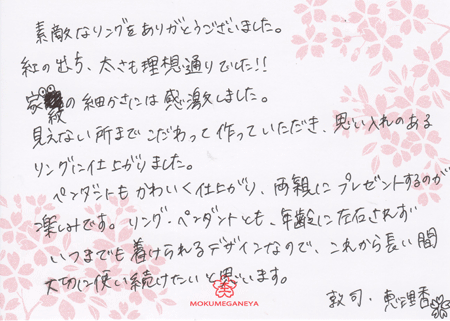 素敵なリングをありがとうございました。
紅の出ち、太さも理想通りでした!!
家紋の細かさには感激しました。
見えない所までこだわって作っていただき、思い入れのある
リングに仕上がりました。
ペンダントもかわいく仕上がり、両親にプレゼントするのが
楽しみです。リング・ペンダントとも、年齢に左右されず
いつまでも着けられるデザインなので、これから長い間
大切に使い続けたいと思います。
敦司・恵理香
MOKUMEGANEYA